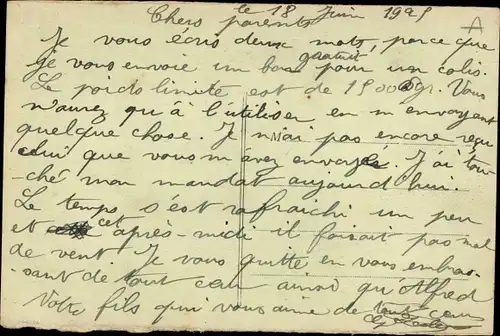 le 18 Juin 1925
A
Chers parents
Je vous écris deux mots, parce que
je vous envoie un bon gratuit pour un colis.
Le poids limité est de 1500gr. Vous
n'aurez qu'à l'utiliser en m'envoyant
quelque chose. Je n'ai pas encore reçu
celui que vous m'avez envoyé. J'ai tou-
ché mon mandat aujourd'hui.
Le temps s'est rafraichi un peu
et cet après-midi il faisait pas mal
de vent. Je vous quitte en vous embras-
sant de tout cœur ainsi qu'Alfred
Votre fils qui vous aime de tout cœur